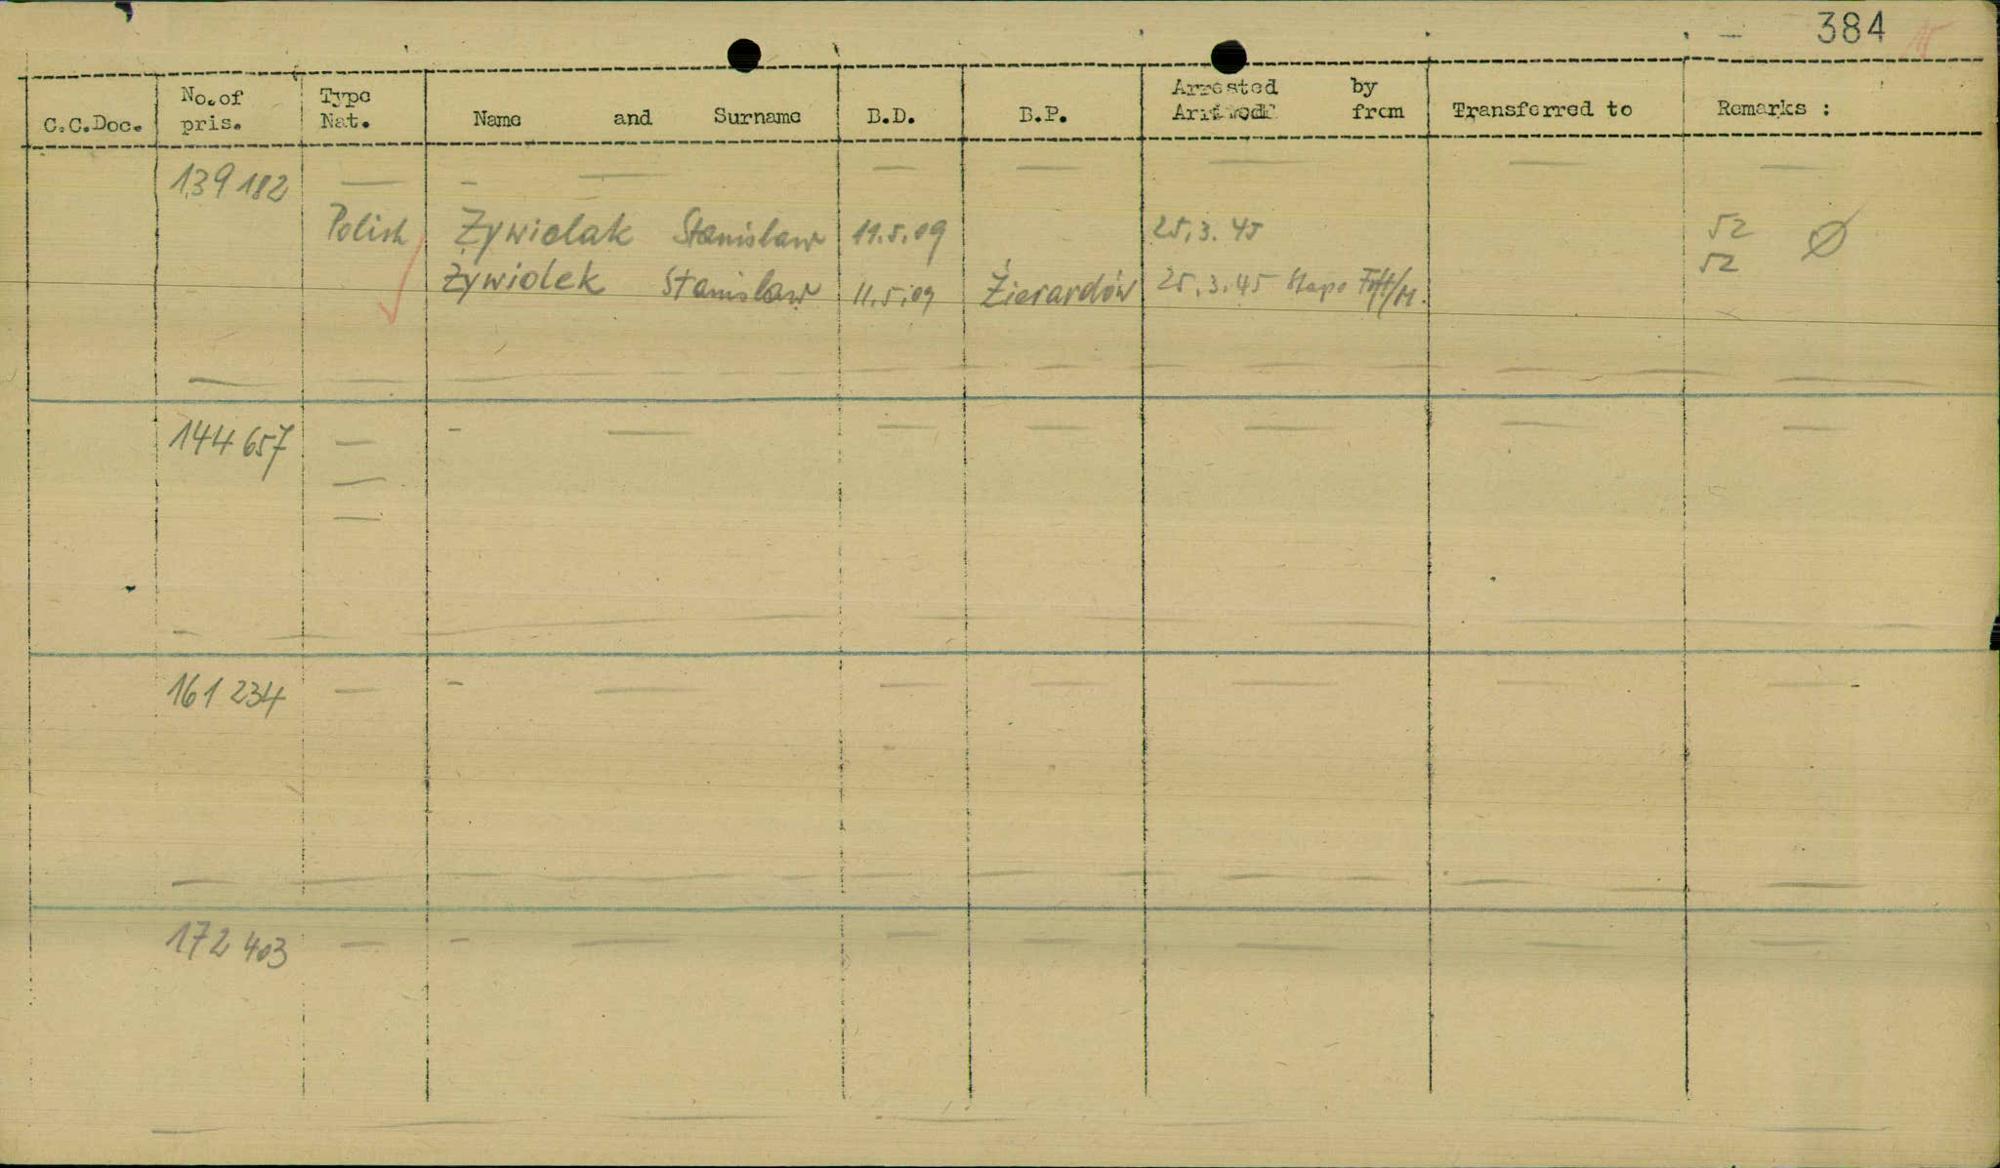 384
C.C.Doc. No. of pris. Type Nat. Name and Surname B.D. B.P. Arrested by Arrived from Transferred to Remarks :
139 182 — — — — — — — —
Polish Żywiolak Stanislaw 11.5.09 25.3.45 52 Ø
Żywiolek Stanislaw 11.5.09 Żierardów 25.3.45 Stapo Fft/M. 52
144 657 — — — — — — — —
—
—
161 234 — — — — — — — —
172 403 — — — — — — — —